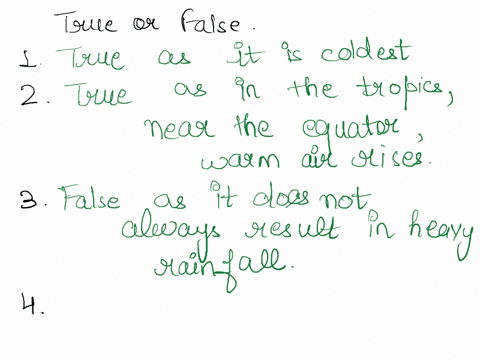 True or False.
1. True as it is coldest
2. True as in the tropics,
near the equator,
warm air rises.
3. False as it does not
always result in heavy
rainfall.
4.